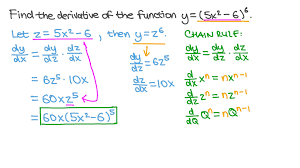 Find the derivative of the function y = (5x² − 6)⁶.
Let z = 5x² − 6, then y = z⁶.
dy/dx = dy/dz · dz/dx
= 6z⁵ · 10x
= 60xz⁵
= 60x(5x² − 6)⁵
dy/dz = 6z⁵
dz/dx = 10x
CHAIN RULE:
dy/dx = dy/dz · dz/dx
d/dx xⁿ = nxⁿ⁻¹
d/dz zⁿ = nzⁿ⁻¹
d/dQ Qⁿ = nQⁿ⁻¹